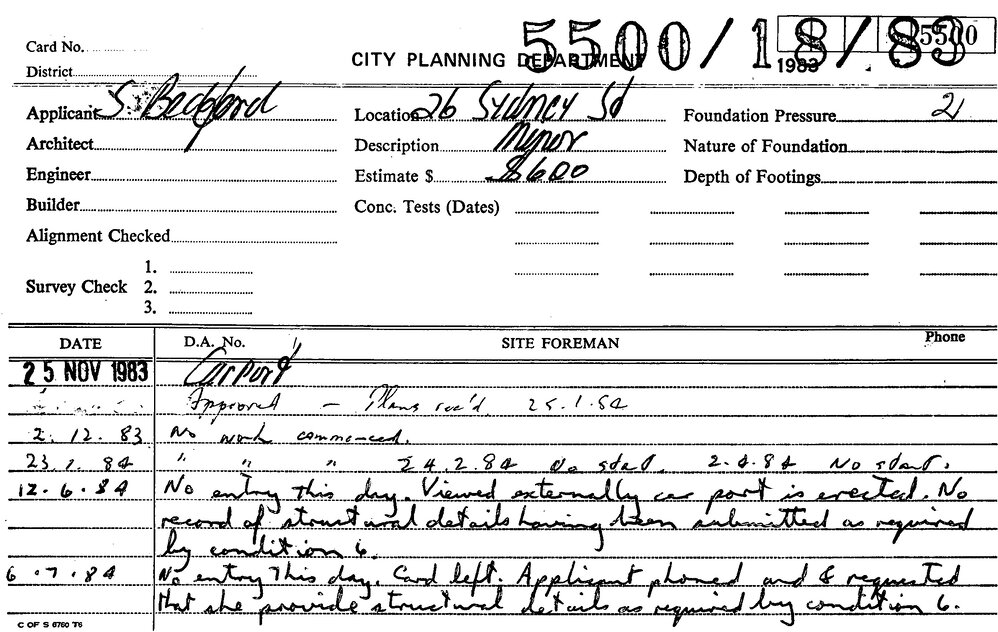 5500/18/83
5500
1983
Card No.
CITY PLANNING DEPARTMENT
District
Applicant S. Bedford Location 26 Sydney Sd Foundation Pressure 21
Architect Description Minor Nature of Foundation
Engineer Estimate $ $600 Depth of Footings
Builder Conc. Tests (Dates)
Alignment Checked
1.
Survey Check 2.
3.
DATE D.A. No. SITE FOREMAN Phone
25 NOV 1983 Carport
Approved — Plans rec'd 25.1.84
2.12.83 No work commenced.
23.1.84 " " " 24.2.84 No start. 2.4.84 No start.
12.6.84 No entry this day. Viewed externally car port is erected. No
record of structural details having been submitted as required
by condition 6.
6.7.84 No entry this day. Card left. Applicant phoned and I requested
that she provide structural details as required by condition 6.
C OF S 6760 T6